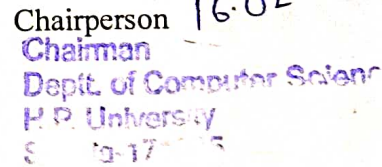 Chairperson 16.02
Chairman
Deptt. of Computer Scienc
H.P. University